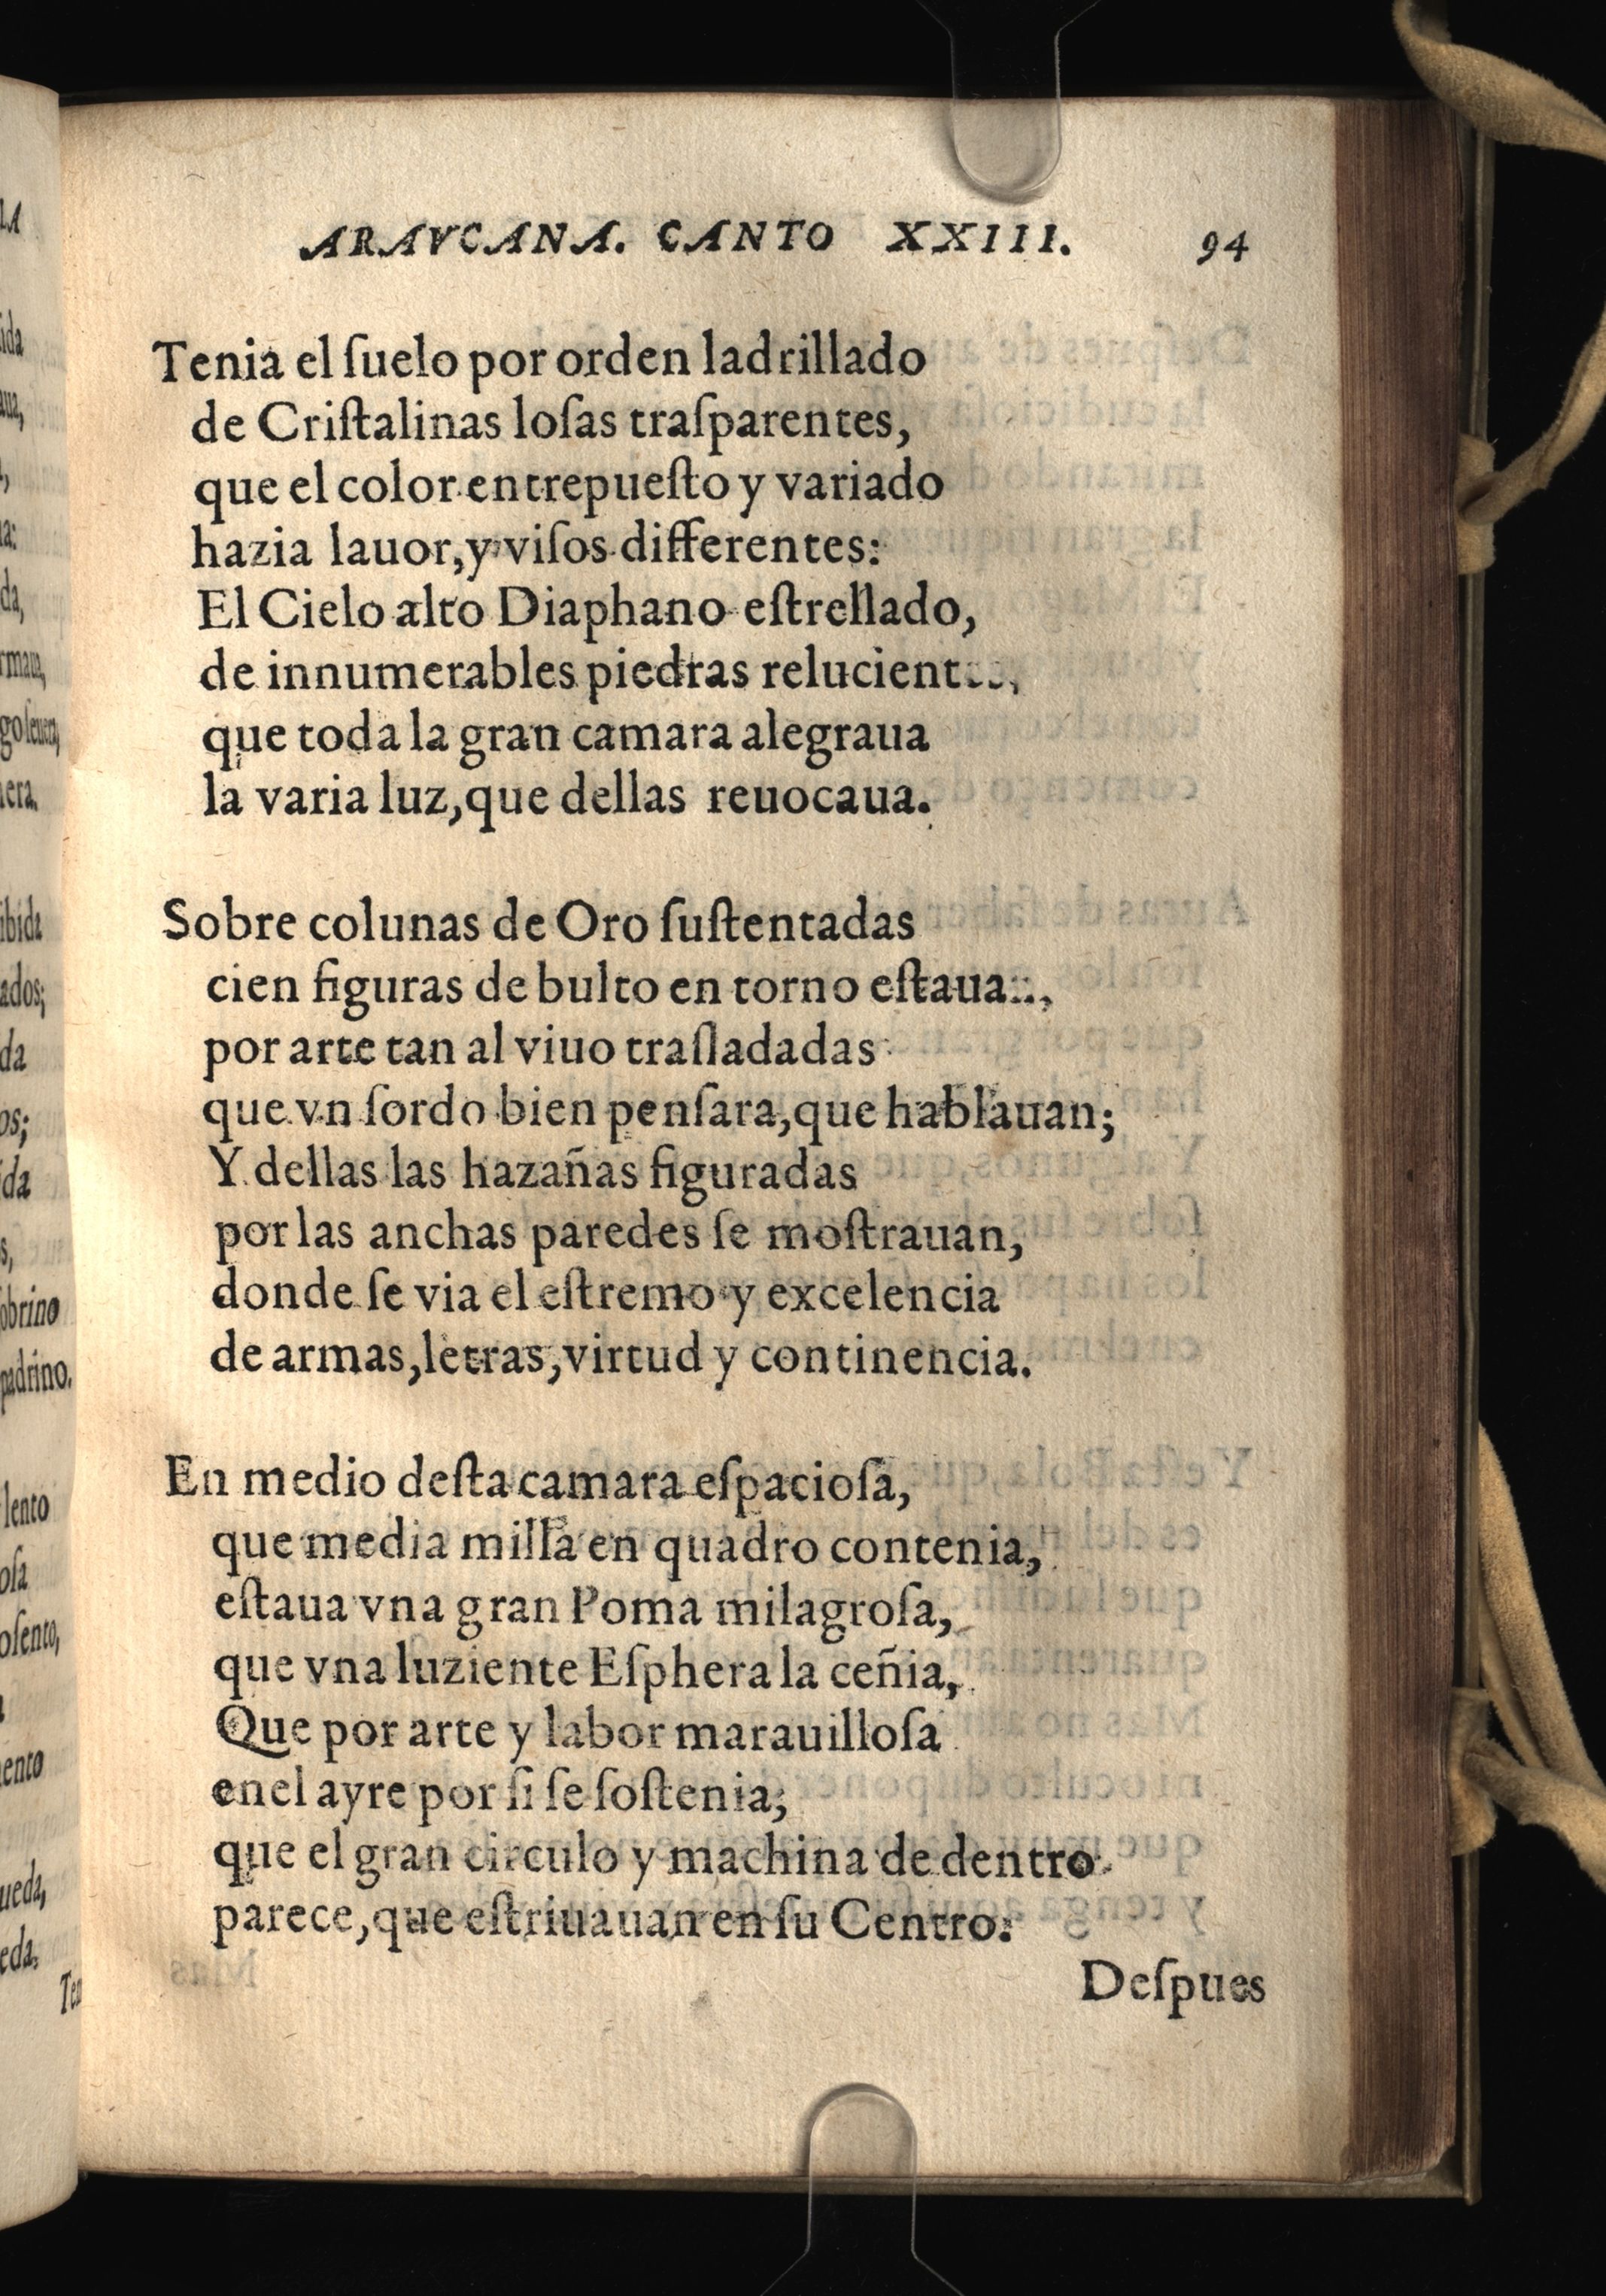 ARAVCANA. CANTO XXIII. 94
Tenia el ſuelo por orden ladrillado
de Criſtalinas loſas traſparentes,
que el color entrepueſto y variado
hazia lauor, y viſos differentes:
El Cielo alto Diaphano eſtrellado,
de innumerables piedras relucientes,
que toda la gran camara alegraua
la varia luz, que dellas reuocaua.
Sobre colunas de Oro ſuſtentadas
cien figuras de bulto en torno eſtauan,
por arte tan al viuo traſladadas
que vn ſordo bien penſara, que hablauan;
Y dellas las hazañas figuradas
por las anchas paredes ſe moſtrauan,
donde ſe via el eſtremo y excelencia
de armas, letras, virtud y continencia.
En medio deſta camara eſpacioſa,
que media milla en quadro contenia,
eſtaua vna gran Poma milagroſa,
que vna luziente Eſphera la ceñia,
Que por arte y labor marauilloſa
enel ayre por ſi ſe ſoſtenia;
que el gran circulo y machina de dentro
parece, que eſtriuauan en ſu Centro.
Deſpues